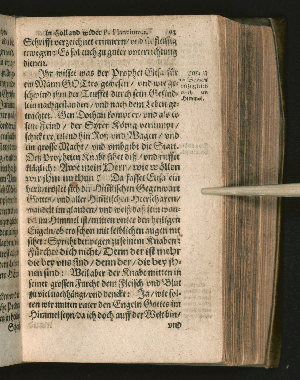 In Holland wider P. Hartmut. 93
Schrifft verzeichnet erinnern/ und fleissig
erwegen: Es sol euch zu guter unterrichtung
dienen.
Ihr wisset was der Prophet Elisa für
ein Mann GOttes gewesen/ und wie ge-
schwind ihm der Teuffel durch sein Gesind-
lein nachgestanden/ und nach dem Leben ge-
trachtet. Gen Dothan kompt er/ und als es
sein Feind/ der Syrer König vernimpt/
schickt er eilend hin Roß und Wagen/ und
ein grosse Macht/ und umbgibt die Stadt.
Deß Propheten Knabe sihet diß/ und ruffet
kläglich: Awe mein Herr/ wie wöllen
wir nun thun? Da fasset Elisa ein
Hertz/ tröstet sich der Himlischen Gegenwart
Gottes/ und aller Himlischen Heerscharen/
wandelt im glauben/ und weiß daß sein wan-
del im Himmel ist/ mitten unter den heiligen
Engeln/ ob er es schon mit leiblichen augen nit
sihet: Spricht derwegen zu seinem Knaben:
Fürchte dich nicht/ Denn der ist mehr
die bey uns sind/ denn der/ die bey ih-
nen sind: Weil aber der Knabe mitten in
seiner grossen Furcht dem Fleisch und Blut
zu viel nachhängt/ und dencket: Ja/ wie sol-
ten wir mitten unter den Engeln Gottes im
Himmel seyn/ da ich doch auff der Welt bin/
und
Himmel.